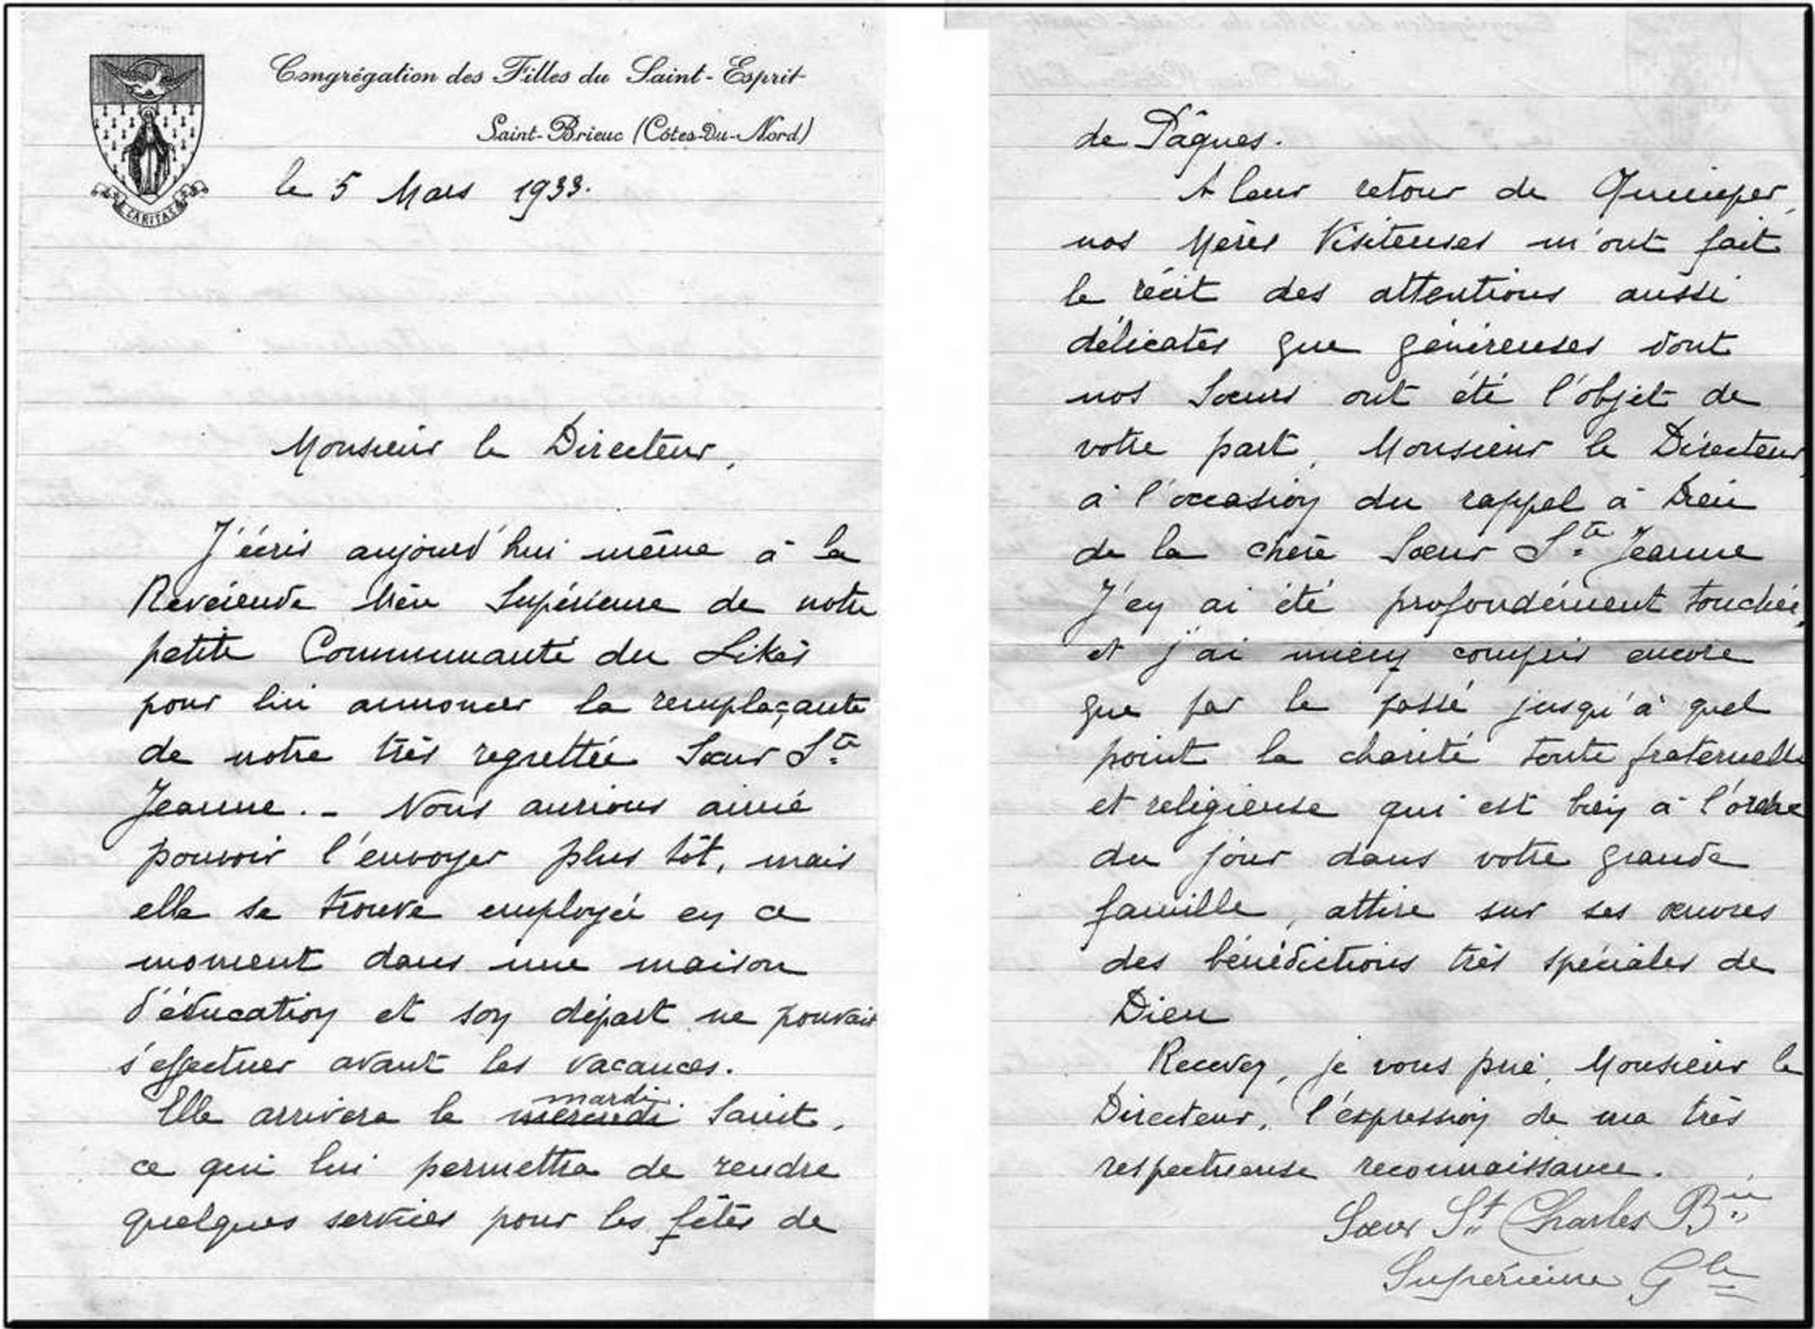 Congrégation des Filles du Saint-Esprit
Saint-Brieuc (Côtes-Du-Nord)
CARITAS
le 5 Mars 1933.
Monsieur le Directeur,
J'écris aujourd'hui même à la
Révérende Mère Supérieure de notre
petite Communauté du Likès
pour lui annoncer la remplaçante
de notre très regrettée Sœur Ste
Jeanne. - Nous aurions aimé
pouvoir l'envoyer plus tôt, mais
elle se trouve employée en ce
moment dans une maison
d'éducation et son départ ne pouvait
s'effectuer avant les vacances.
mardi
Elle arrivera le mercredi Saint,
ce qui lui permettra de rendre
quelques services pour les fêtes de
de Pâques.
A leur retour de Quimper,
nos Mères Visiteuses m'ont fait
le récit des attentions aussi
délicates que généreuses dont
nos Sœurs ont été l'objet de
votre part, Monsieur le Directeur,
à l'occasion du rappel à Dieu
de la chère Sœur Ste Jeanne
J'en ai été profondément touchée,
et j'ai mieux compris encore
que par le passé jusqu'à quel
point la charité toute fraternelle
et religieuse qui est bien à l'ordre
du jour dans votre grande
famille, attire sur ses œuvres
des bénédictions très spéciales de
Dieu
Recevez, je vous prie, Monsieur le
Directeur, l'expression de ma très
respectueuse reconnaissance.
Sœur St Charles
Supérieure Gle